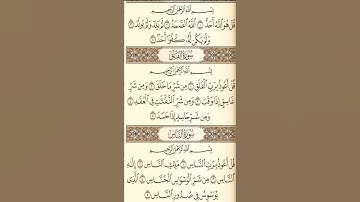 بِسْمِ ٱللَّهِ ٱلرَّحْمَٰنِ ٱلرَّحِيمِ
قُلْ هُوَ ٱللَّهُ أَحَدٌ ١ ٱللَّهُ ٱلصَّمَدُ ٢ لَمْ يَلِدْ وَلَمْ يُولَدْ ٣
وَلَمْ يَكُن لَّهُۥ كُفُوًا أَحَدٌۢ ٤
سُورَةُ ٱلْفَلَقِ
بِسْمِ ٱللَّهِ ٱلرَّحْمَٰنِ ٱلرَّحِيمِ
قُلْ أَعُوذُ بِرَبِّ ٱلْفَلَقِ ١ مِن شَرِّ مَا خَلَقَ ٢ وَمِن شَرِّ
غَاسِقٍ إِذَا وَقَبَ ٣ وَمِن شَرِّ ٱلنَّفَّٰثَٰتِ فِى ٱلْعُقَدِ ٤
وَمِن شَرِّ حَاسِدٍ إِذَا حَسَدَ ٥
سُورَةُ ٱلنَّاسِ
بِسْمِ ٱللَّهِ ٱلرَّحْمَٰنِ ٱلرَّحِيمِ
قُلْ أَعُوذُ بِرَبِّ ٱلنَّاسِ ١ مَلِكِ ٱلنَّاسِ ٢ إِلَٰهِ
ٱلنَّاسِ ٣ مِن شَرِّ ٱلْوَسْوَاسِ ٱلْخَنَّاسِ ٤ ٱلَّذِى
يُوَسْوِسُ فِى صُدُورِ ٱلنَّاسِ ٥